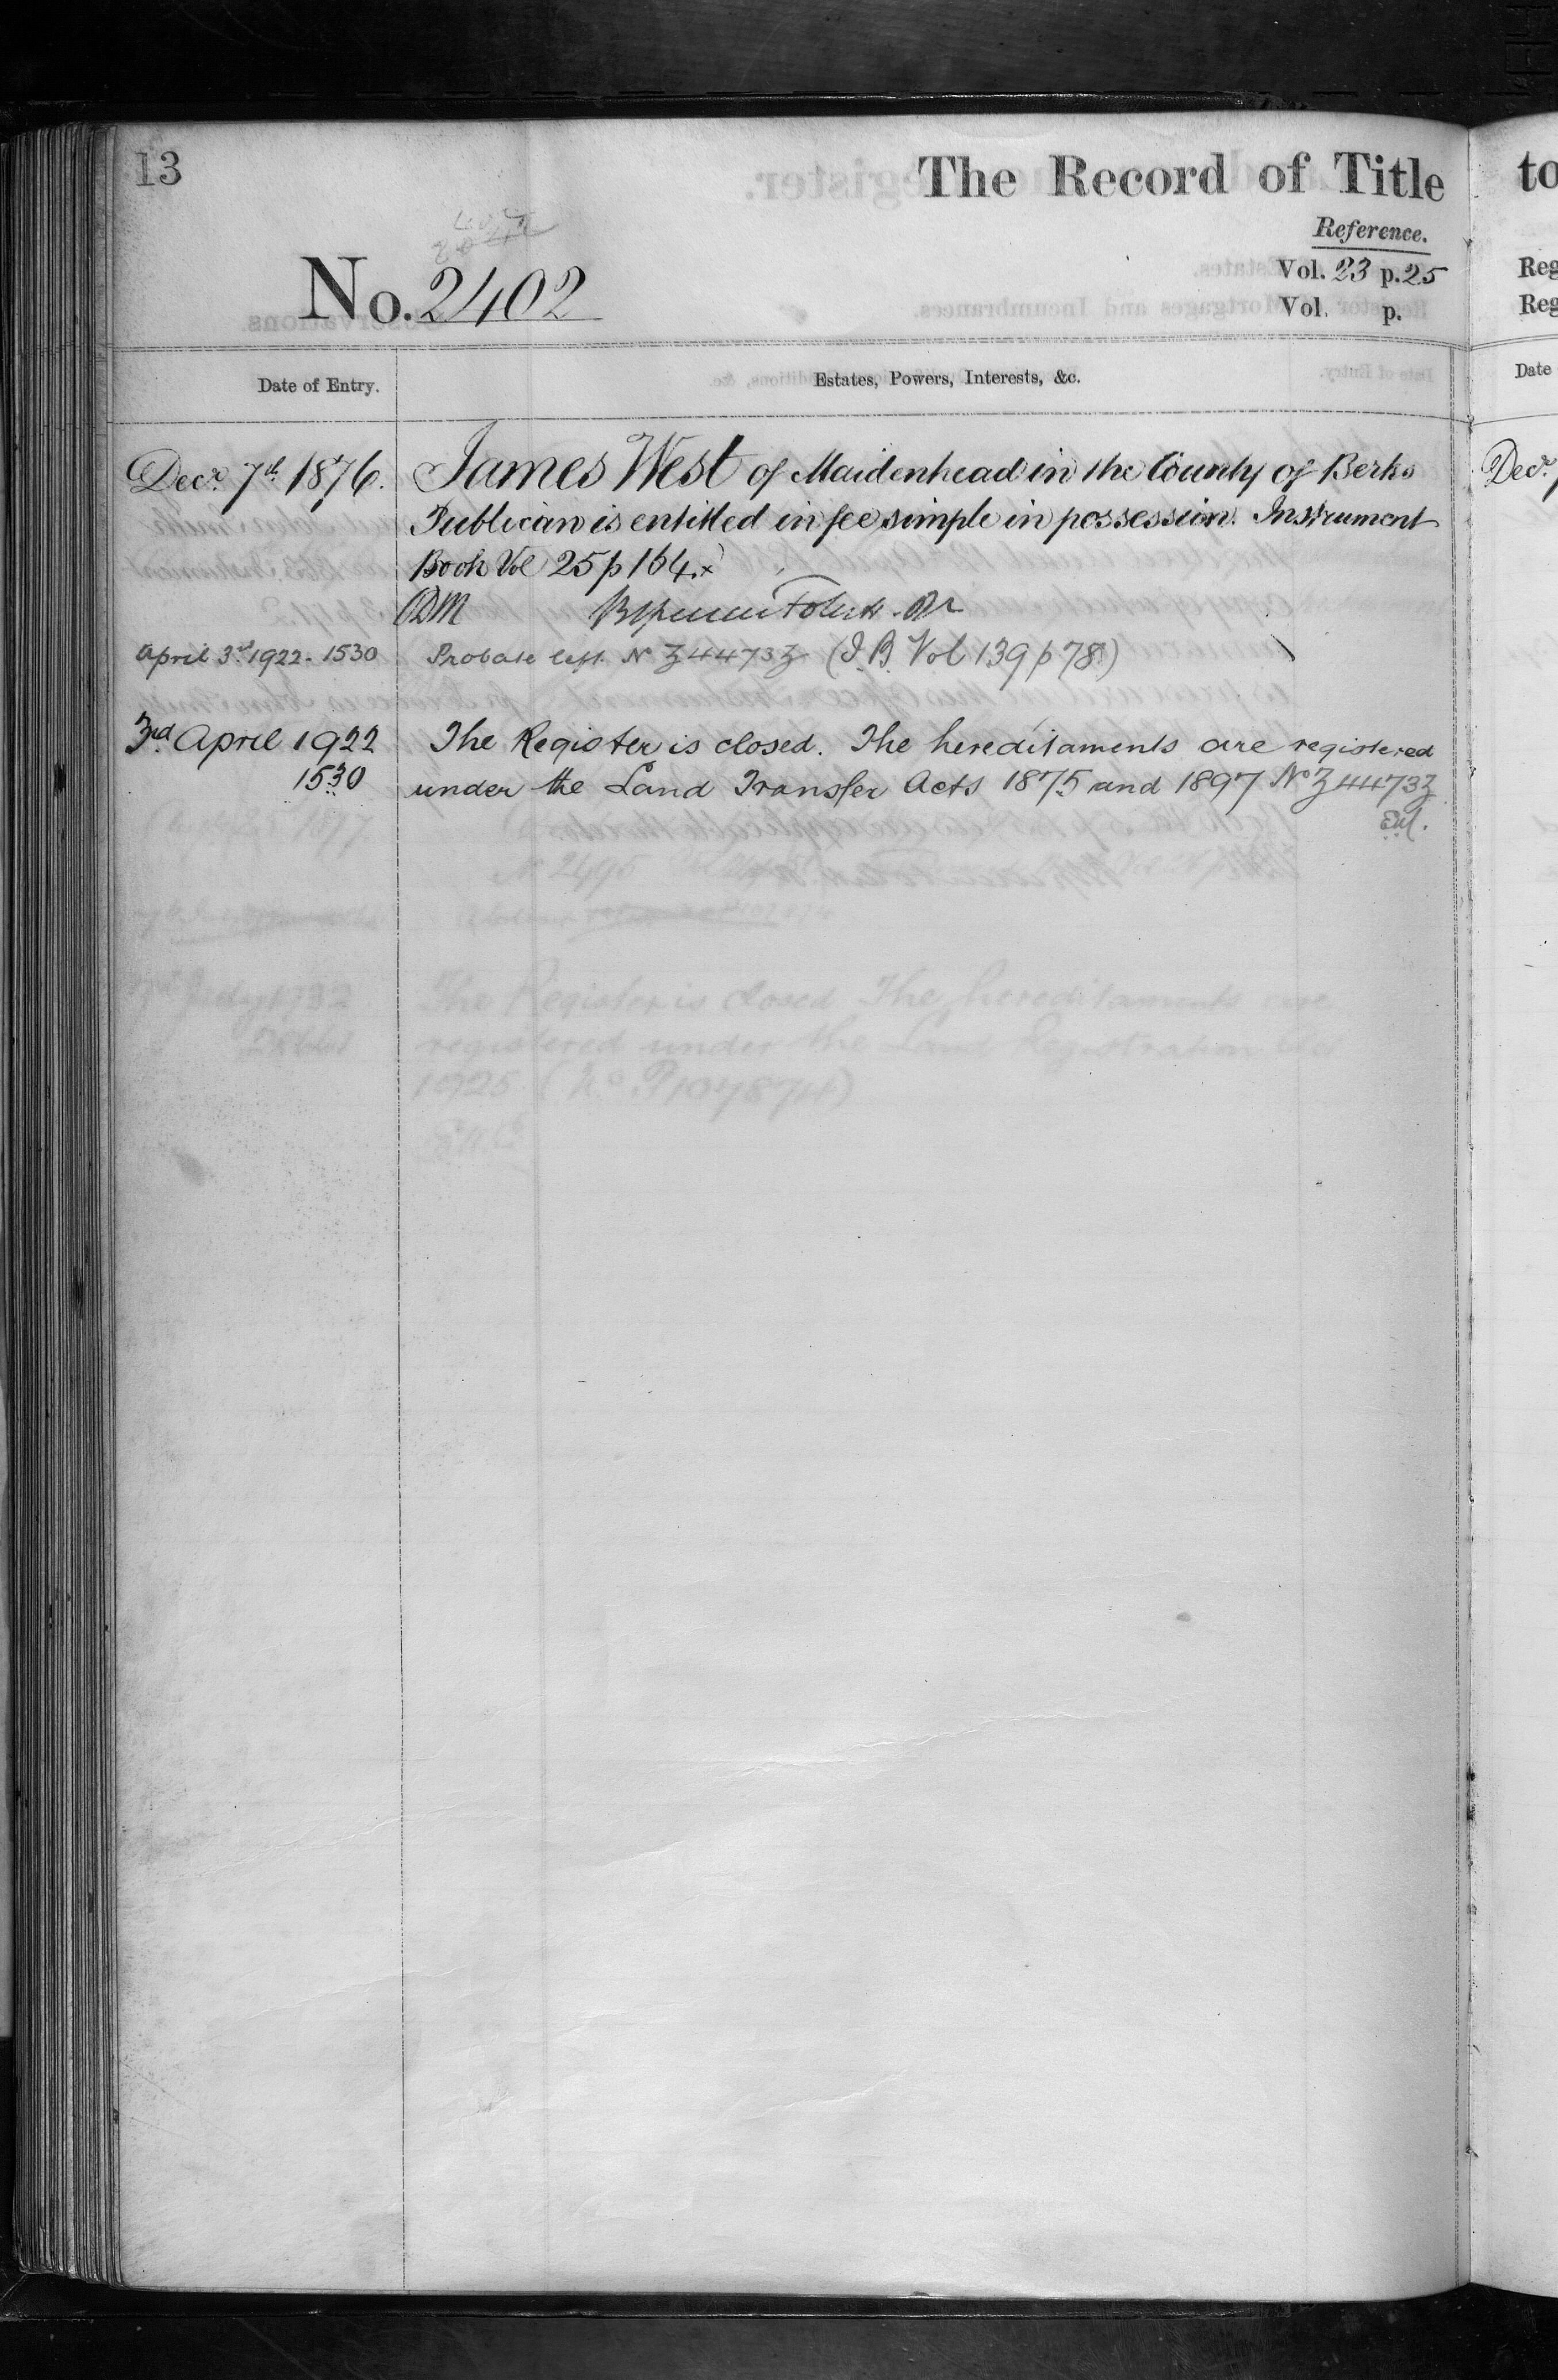 13
The Record of Title
Reference.
No. 2402
Vol. 23 p. 25
Vol. p.
Date of Entry. Estates, Powers, Interests, &c.
Decr. 7th 1876. James West of Maidenhead in the County of Berks
Publican is entitled in fee simple in possession. Instrument
Book Vol 25 p 164. x
DM
April 3rd 1922. 1530 Probate left. No Z4473Z (I.B. Vol 139 p 78)
3rd April 1922 The Register is closed. The hereditaments are registered
1530 under the Land Transfer Acts 1875 and 1897 No Z4473Z
The Register is closed The hereditaments are
registered under the Land Registration Act
1925 (No P107874)
to
Reg
Reg
Date
Decr.